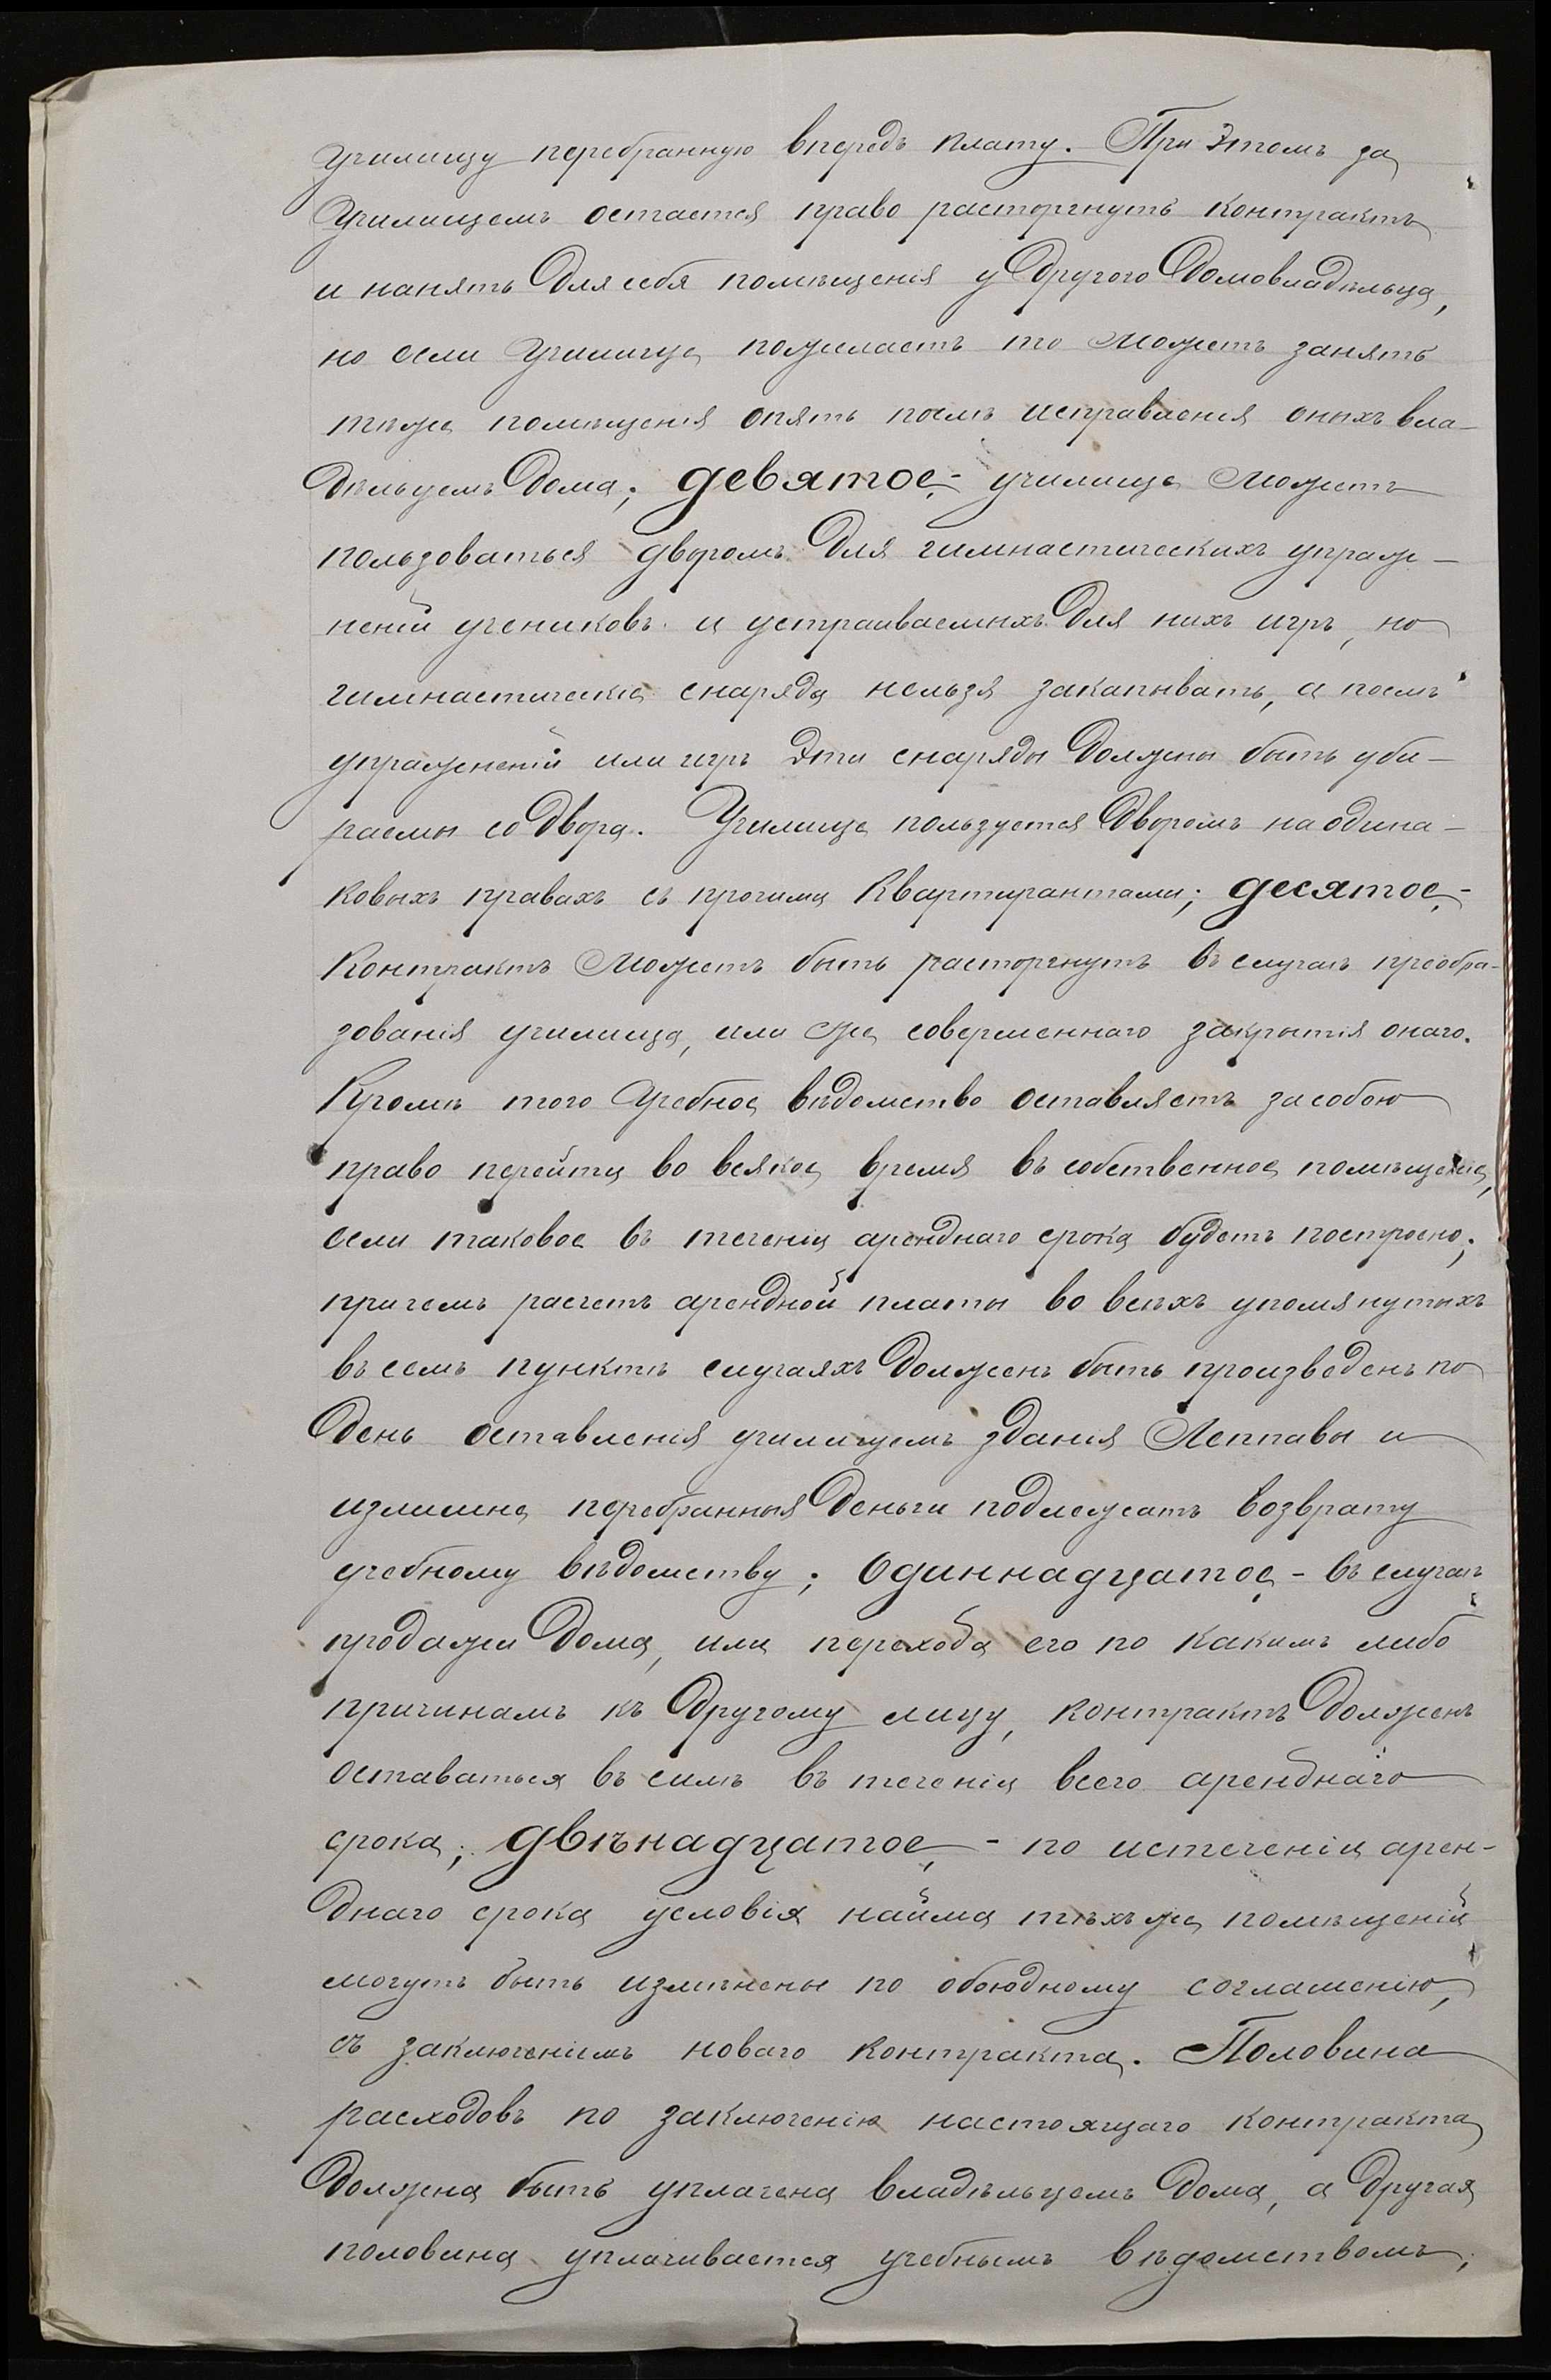 училищу перебранную впередъ плату. При этомъ за
училищемъ остается право расторгнуть контрактъ
и нанять для себя помѣщенія у другого домовладѣльца,
но если училище пожелаетъ то можетъ занять
тѣже помѣщенія опять послѣ исправленія оныхъ вла-
дѣльцемъ дома; девятое,- училище можетъ
пользоваться дворомъ для гимнастическихъ упраж-
неній учениковъ и устраиваемыхъ для нихъ игръ, но
гимнастическіе снаряды нельзя закапывать, а послѣ
упражненій или игръ эти снаряды должны быть уби-
раемы со двора. Училище пользуется дворомъ на одина-
ковыхъ правахъ съ прочими квартирантами; десятое,-
контрактъ можетъ быть расторгнутъ въ случаѣ преобра-
зованія училища, или же совершеннаго закрытія онаго.
Кромѣ того учебное вѣдомство оставляетъ за собою
право перейти во всякое время въ собственное помѣщеніе,
если таковое въ теченіи аренднаго срока будетъ построено;
причемъ расчетъ арендной платы во всѣхъ упомянутыхъ
въ семъ пунктѣ случаяхъ долженъ быть произведенъ по
день оставленія училищемъ зданія Леппавы и
излишне перебранныя деньги подлежатъ возврату
учебному вѣдомству; одиннадцатое,- въ случаѣ
продажи дома, или перехода его по какимъ либо
причинамъ къ другому лицу, контрактъ долженъ
оставаться въ силѣ въ теченіи всего аренднаго
срока; двѣнадцатое,- по истеченіи арен-
днаго срока условія найма тѣхъ же помѣщеній
могутъ быть измѣнены по обоюдному соглашенію,
съ заключеніемъ новаго контракта. Половина
расходовъ по заключенію настоящаго контракта
должна быть уплачена владѣльцемъ дома, а другая
половина уплачивается учебнымъ вѣдомствомъ;